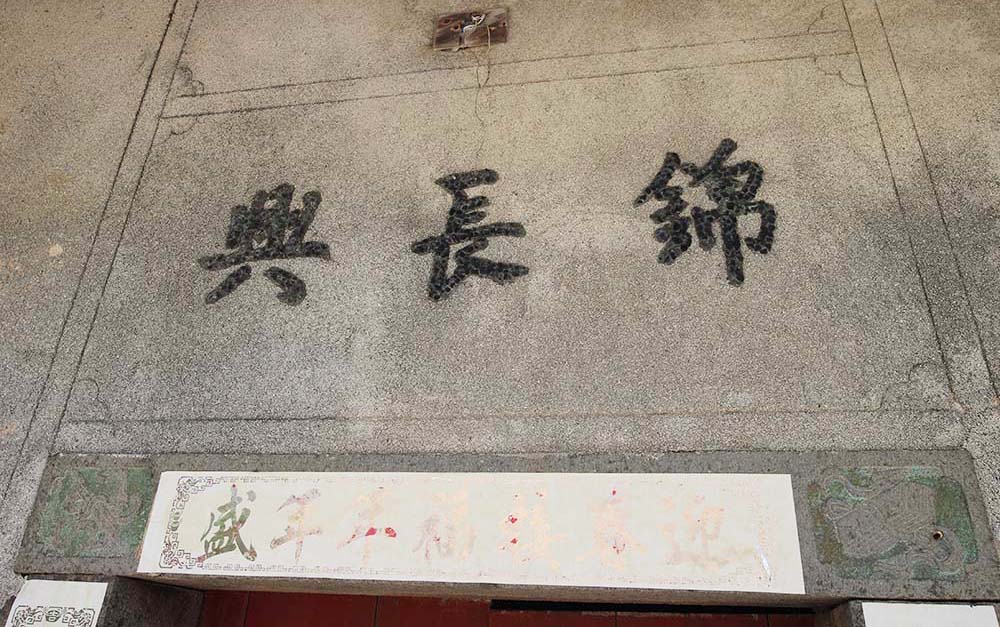 錦長興
迎春接福年年盛